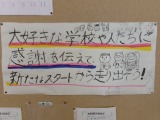 大好きな学校や人たちに
感謝を伝えて
新たなスタートから走り出そう!